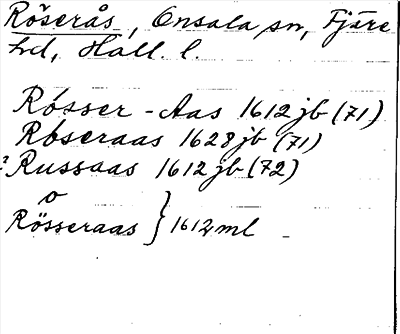 Röserås, Onsala sn, Fjäre
hd, Hall. l.
Rósser-Aas 1612 jb (71)
Róseraas 1628 jb (71)
? Russaas 1612 jb (72)
o
Rösseraas } 1612 ml